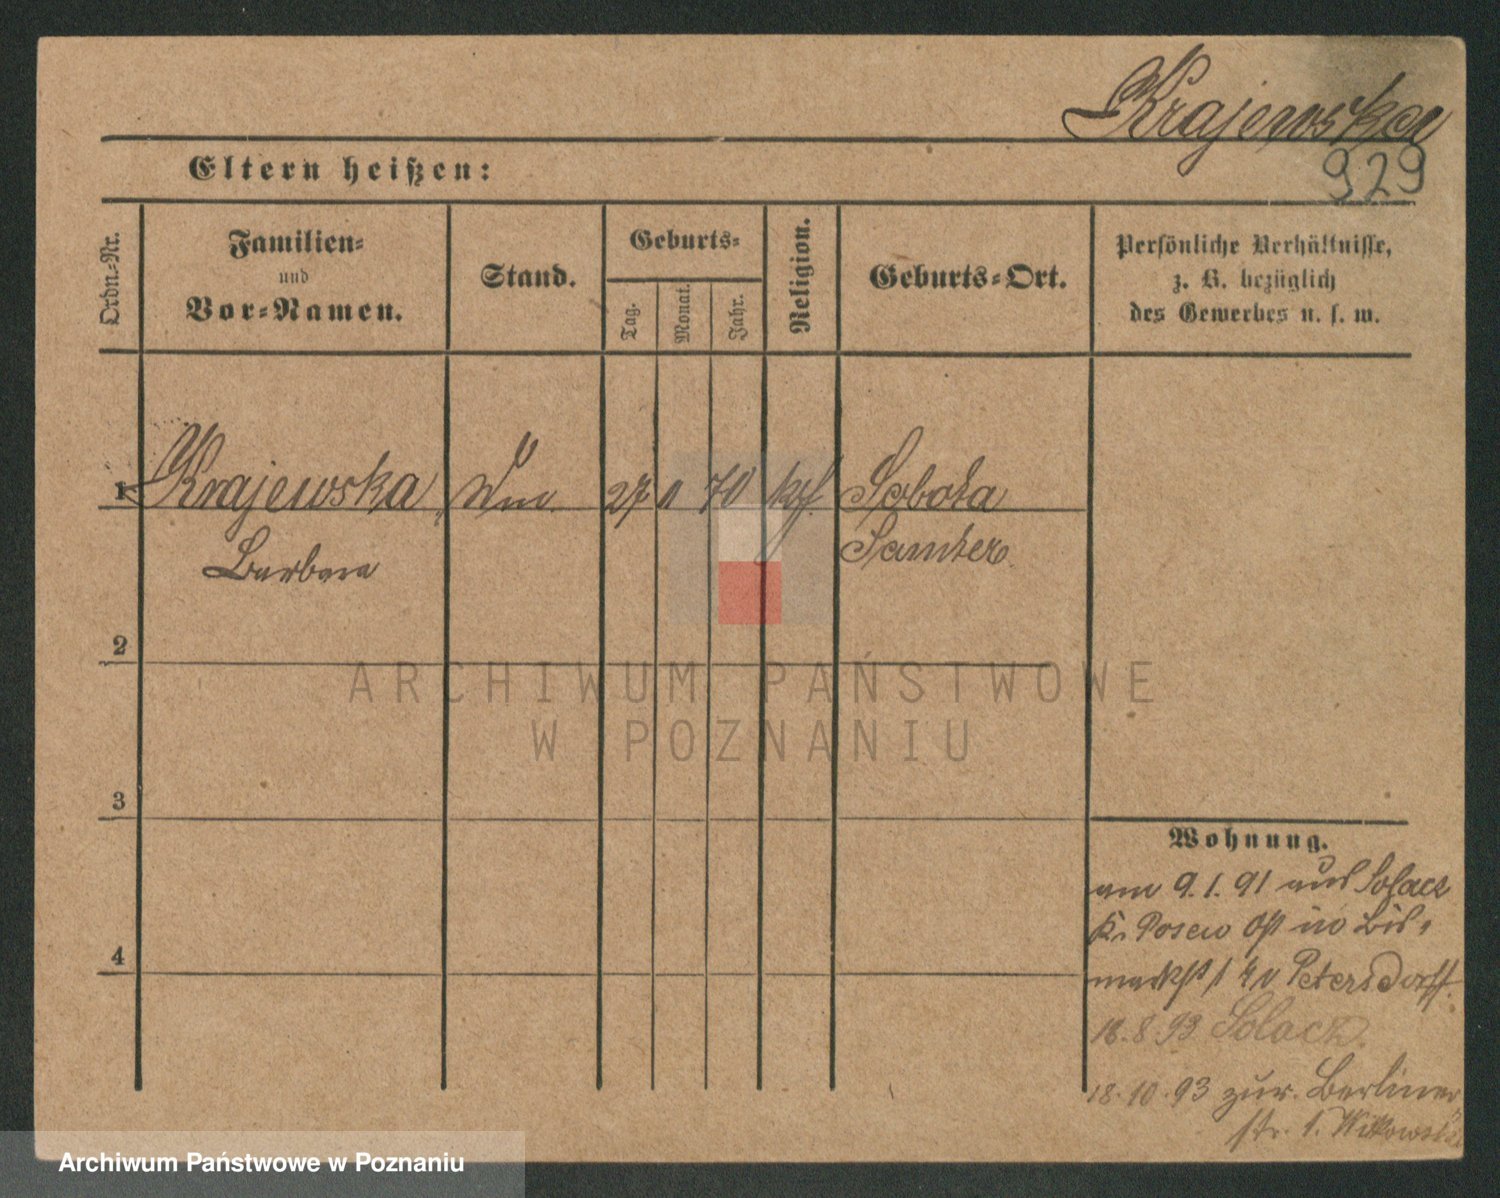 Krajewska
929
Eltern heißen:
Ordn.-Nr.
Familien-
und
Vor-Namen.
Stand.
Geburts-
Tag.
Monat.
Jahr.
Religion.
Geburts-Ort.
Persönliche Verhältnisse,
z. B. bezüglich
des Gewerbes u. s. w.
1 Krajewska 27 70 Sobota
Barbara Samter
2
3
4
ARCHIWUM PAŃSTWOWE
W POZNANIU
Wohnung.
am 9.1.91 aus Solacz
K. Posen Ost in Bis-
markst 1 Petersdorff.
18.8.93 Solacz.
18.10.93 zur. Berliner
str. 1. Witkowski
Archiwum Państwowe w Poznaniu